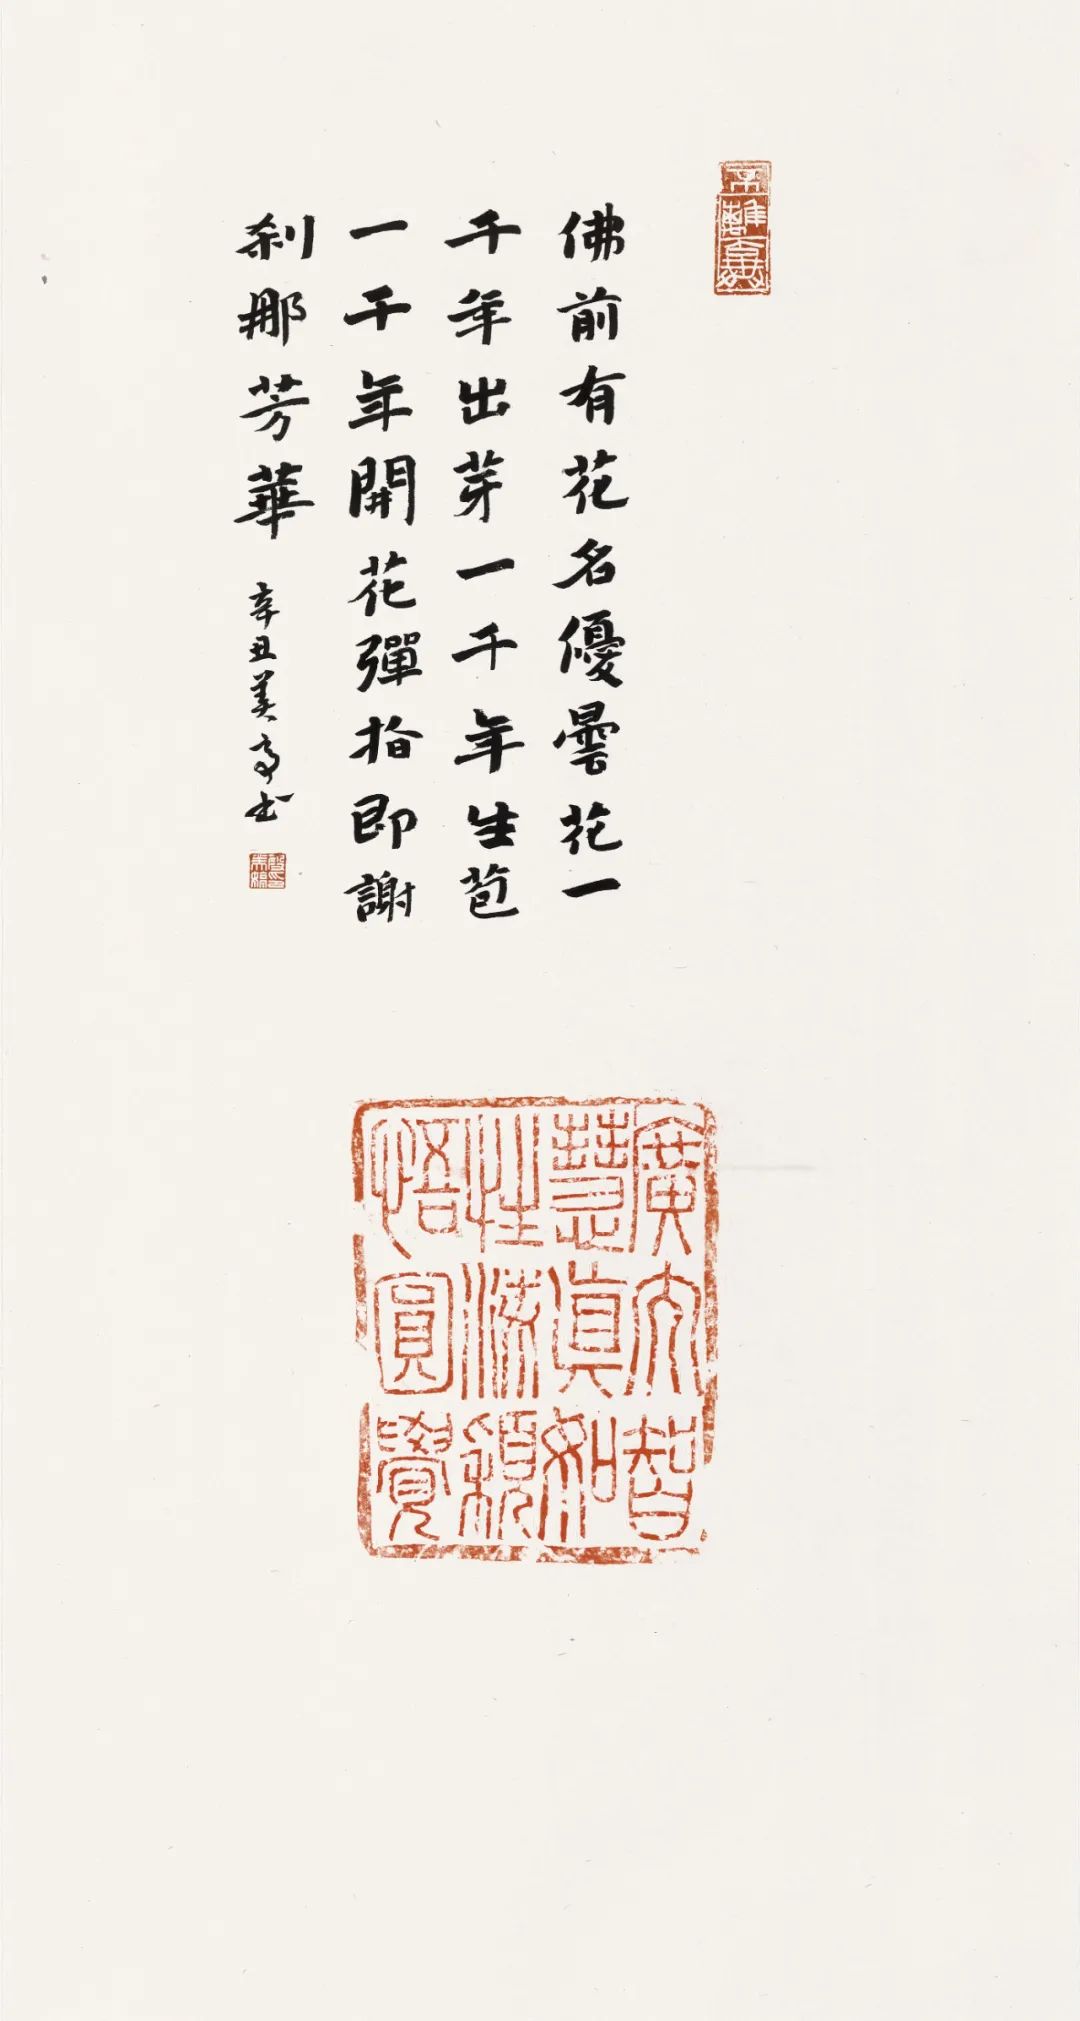 佛前有花名優曇花一
千年出芽一千年生苞
一千年開花彈指即謝
刹那芳華
辛丑美亭书
廣大智
慧真如
性海頓
悟圓覺